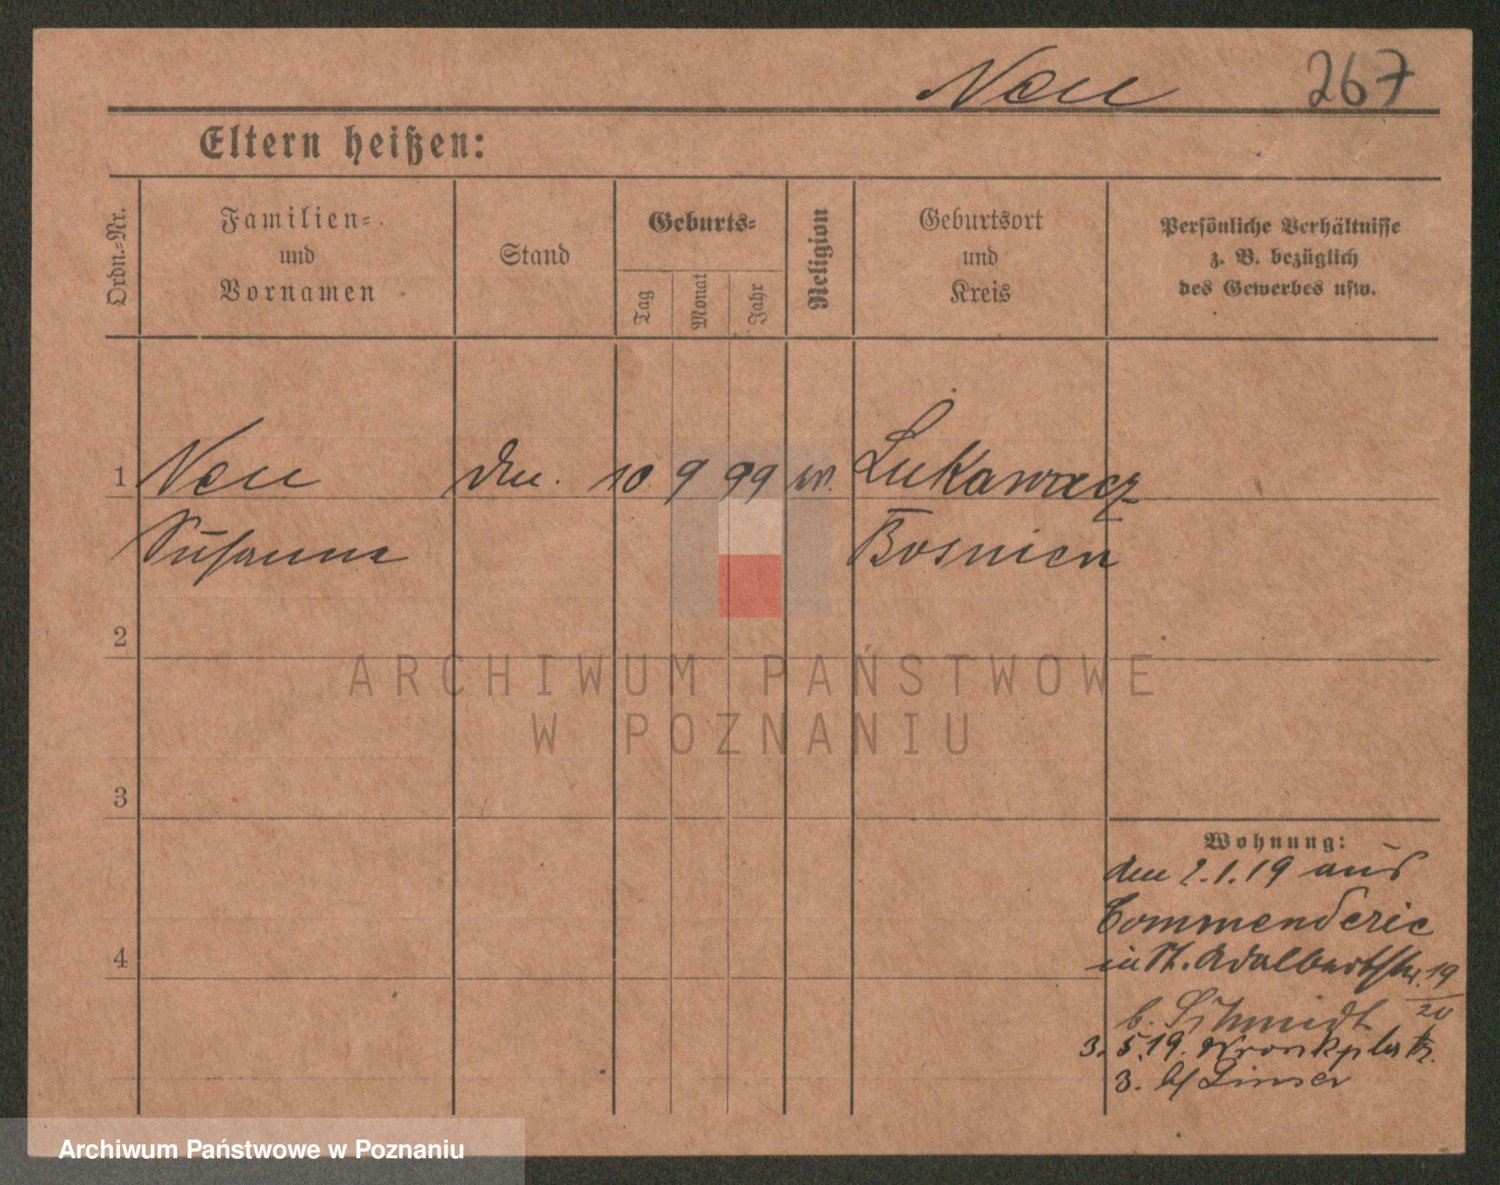 Neu 267
Eltern heißen:
Ordn.-Nr.
Familien-
und
Vornamen
Stand
Geburts-
Tag
Monat
Jahr
Religion
Geburtsort
und
Kreis
Persönliche Verhältnisse
z. B. bezüglich
des Gewerbes usw.
1 Neu 10 9 99 Lukawacz
Susanna Bosnien
2
ARCHIWUM PAŃSTWOWE
W POZNANIU
3
Wohnung:
den 2.1.19 aus
Commenderie
4 in St. Adalbertstr. 19/20
b. Schmidt
3. 5.19.
3. b/ Linser
Archiwum Państwowe w Poznaniu